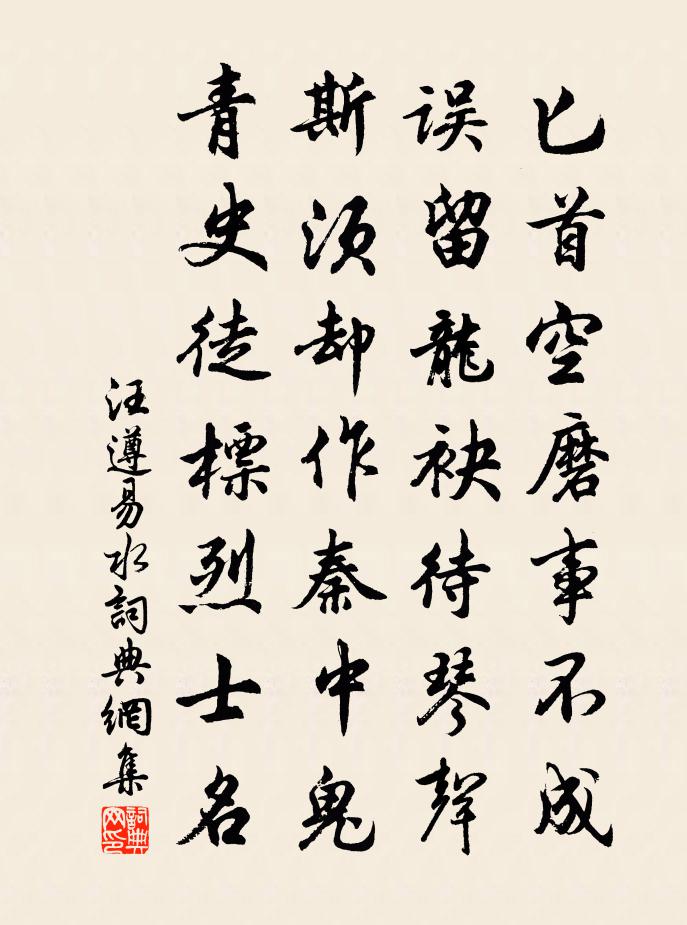 匕首空磨事不成
误留龍袂待琴聲
斯須却作秦中鬼
青史徒標烈士名
汪遵易水詞典網集
詞典网印